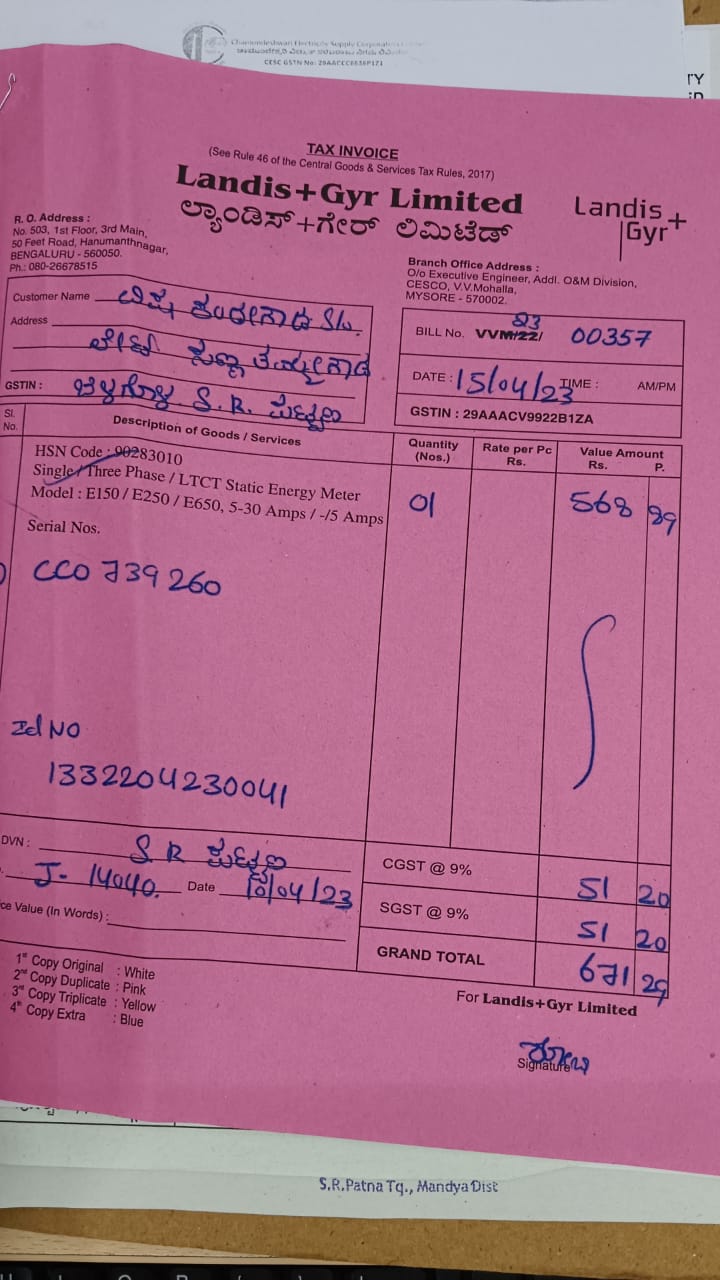 Chamundeshwari Electricity Supply Corporation
CESC GSTN No: 29AACCC6636P1Z1
TAX INVOICE
(See Rule 46 of the Central Goods & Services Tax Rules, 2017)
Landis+Gyr Limited
ಲ್ಯಾಂಡಿಸ್+ಗೇರ್ ಲಿಮಿಟೆಡ್
Landis+
Gyr
R. O. Address :
No. 503, 1st Floor, 3rd Main,
50 Feet Road, Hanumanthnagar,
BENGALURU - 560050.
Ph.: 080-26678515
Branch Office Address :
O/o Executive Engineer, Addl. O&M Division,
CESCO, V.V.Mohalla,
MYSORE - 570002.
Customer Name S/o.
Address
GSTIN : S.R.
BILL No. VVM/22/ 23 00357
DATE : 15/04/23 TIME : AM/PM
GSTIN : 29AAACV9922B1ZA
Sl. No. Description of Goods / Services Quantity (Nos.) Rate per Pc Rs. Value Amount Rs. P.
HSN Code : 90283010
Single / Three Phase / LTCT Static Energy Meter
Model : E150 / E250 / E650, 5-30 Amps / -/5 Amps 01 568 89
Serial Nos.
CC0739260
Id NO
1332204230041
DVN : S.R
J- 14040. Date /04/23
CGST @ 9% 51 20
SGST @ 9% 51 20
ce Value (In Words) :
GRAND TOTAL 671 29
1st Copy Original : White
2nd Copy Duplicate : Pink
3rd Copy Triplicate : Yellow
4th Copy Extra : Blue
For Landis+Gyr Limited
Signature
S.R.Patna Tq., Mandya Dist